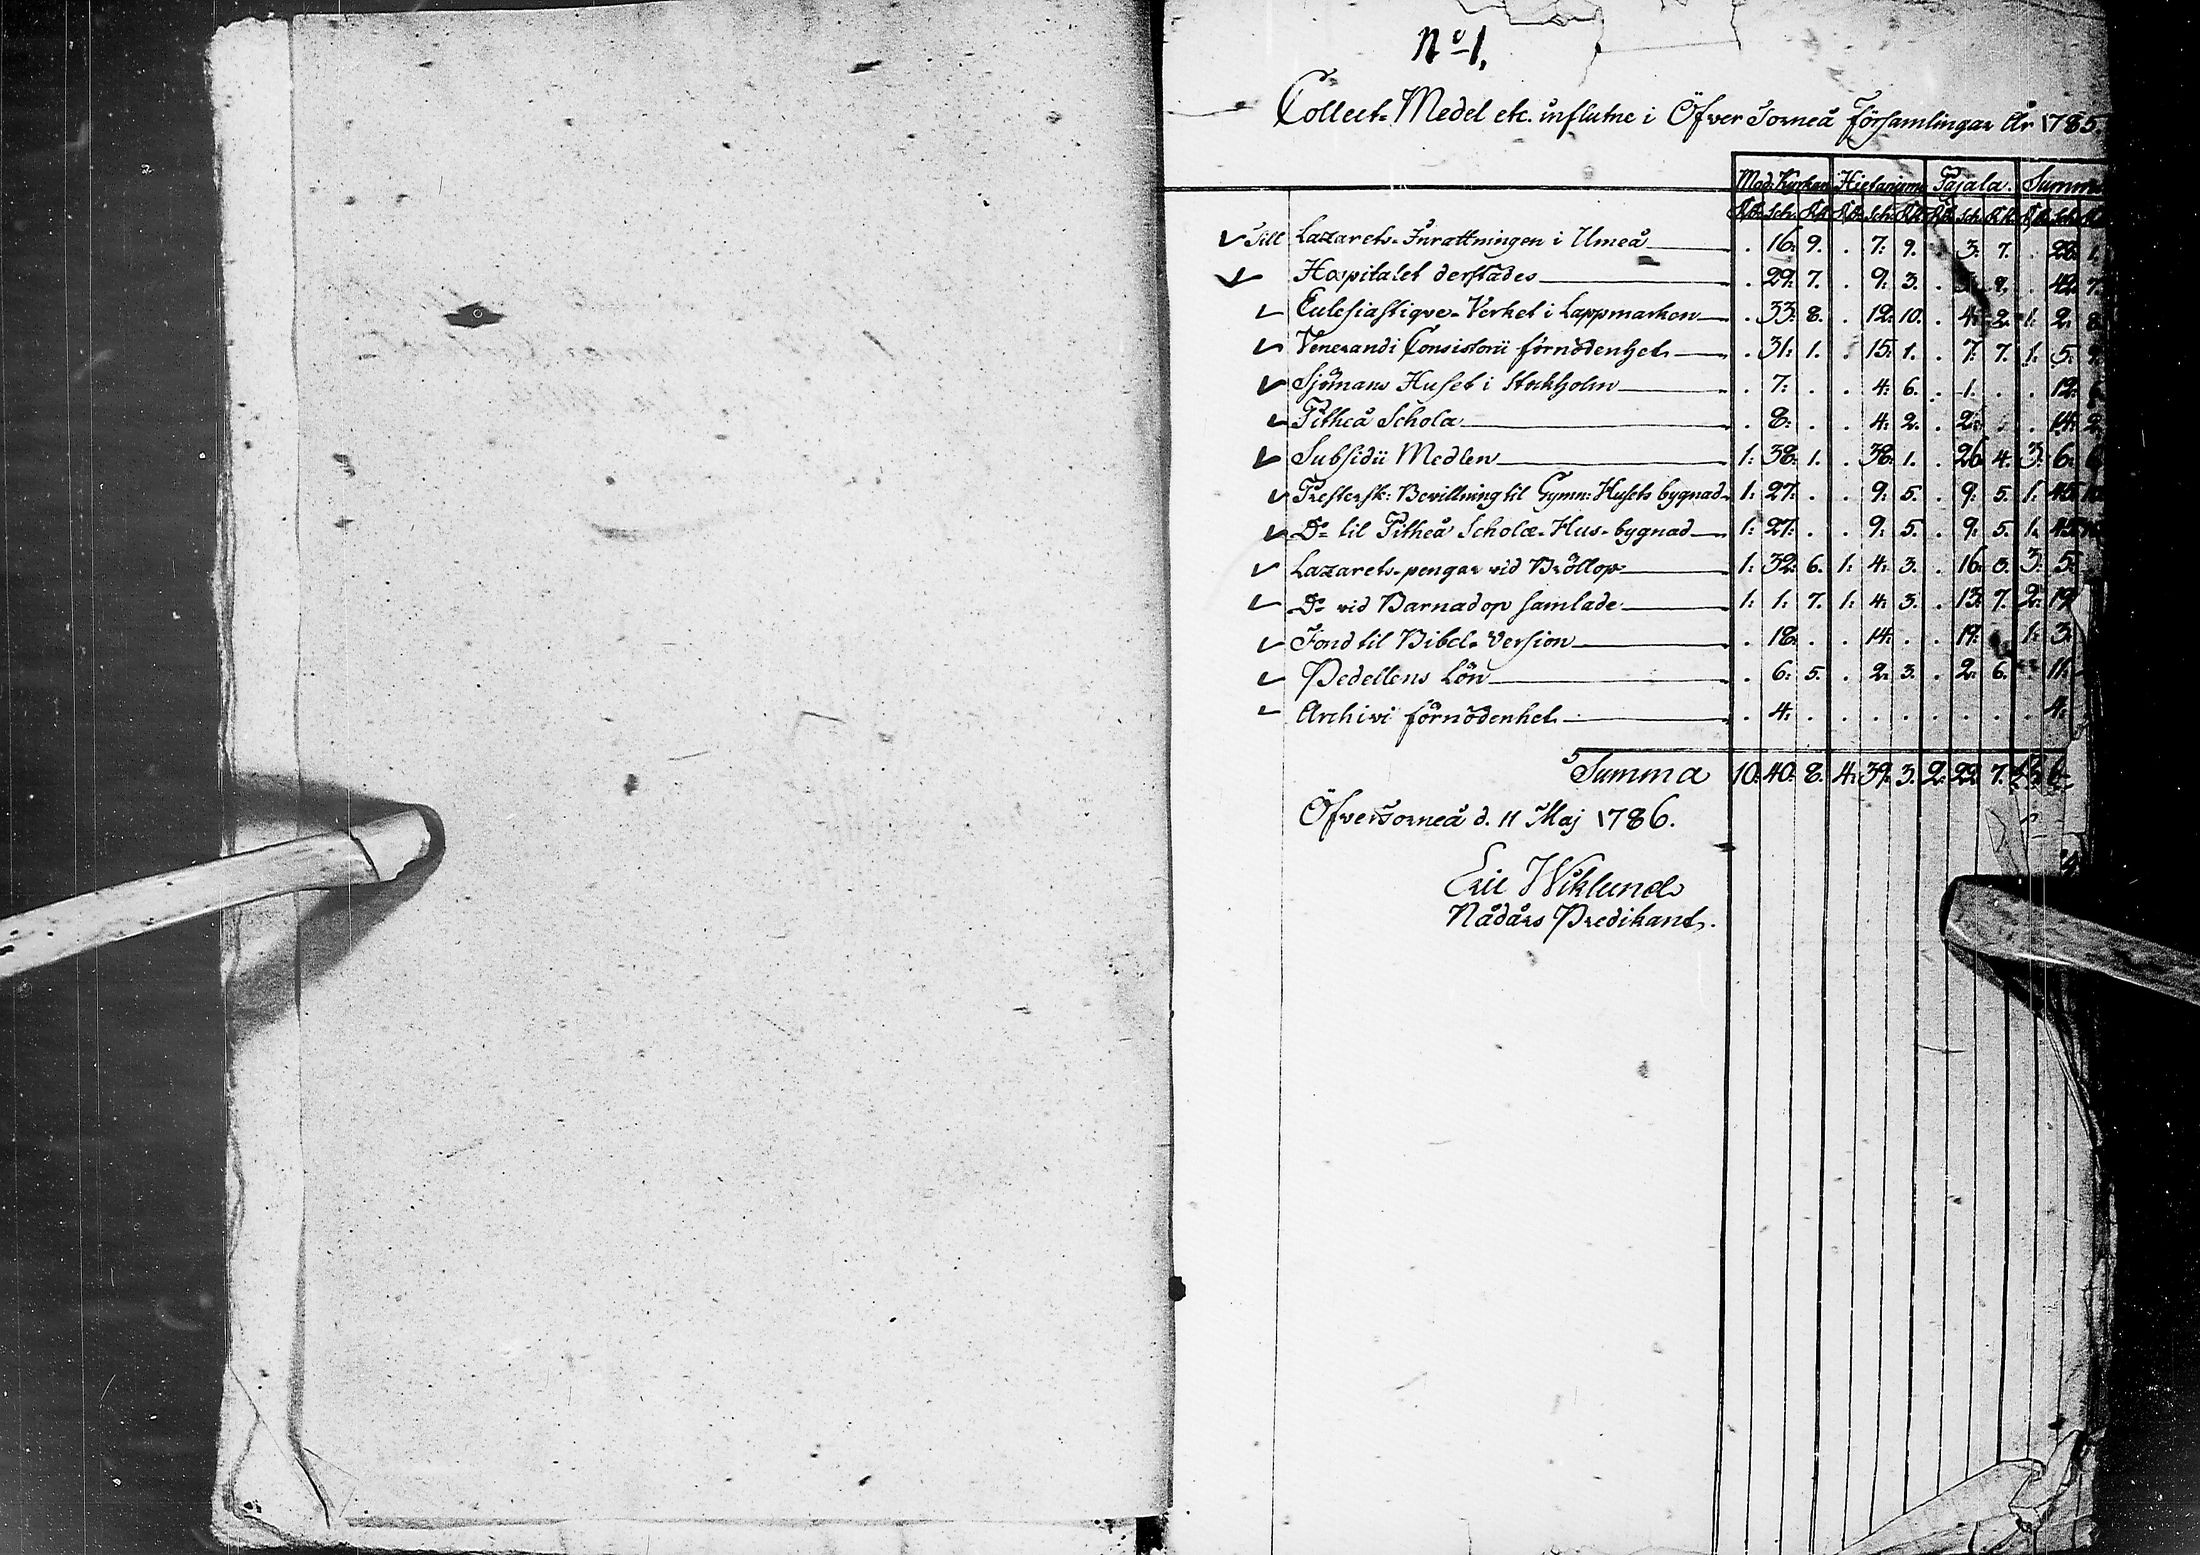 No 1.
Collect-Medel etc. influtne i Öfver Torneå Församlingar År 1785.
Mod. Kyrkan Hietaniemi Pajala. Summa
Rd. Sch. Rst. Rd. Sch. Rst. Rd. Sch. Rst. Rd. Sch.
Till Lazarets-Inrättningen i Umeå . 16: 9. . 7: 9. . 3: 7. . 28: 1.
Hospitalet derstädes . 29: 7. . 9: 3. . 9. . 42: 7.
Ecclesiastique-Verket i Lappmarken . 33: 8. . 12: 10. . 4: 2. 1: 2: 8.
Venerandi Consistorii förnödenhet . 31: 1. . 15: 1. . 7: 7. 1: 5: 9.
Sjömans Huset i Stockholm . 7: . . 4: 6. . 1. . . 12: 6.
Pitheå Schola . 8: . . 4: 2. . 2: . . 14: 2.
Subsidii Medlen 1: 38: 1. . 38: 1. . 26: 4. 3: 6: 6.
Prestersk: Bevillning til Gymn: Husets bygnad 1: 27: . . 9: 5. . 9: 5. 1: 45: 10
Do til Pitheå Scholæ-Hus-bygnad 1: 27: . . 9: 5. . 9: 5. 1: 45: 10
Lazarets-pengar vid Bröllop 1: 32: 6. 1: 4: 3. . 16: 3. 3: 5:
Do vid Barnadop samlade 1: 1: 7. 1: 4: 3. . 13: 7. 2: 19
Fond til Bibel-Version . 18: . . 14: . . 19: 1: 3:
Pedellens Lön . 6: 5. . 2: 3. . 2: 6. 11:
Archivi förnödenhet . 4: . . . . . . . . 4:
Summa 10: 40: 8. 4: 39: 3. 2: 22: 7. 6:
Öfvertorneå d. 11 Maj 1786.
Eric Wiklund
Nådårs Predikant.